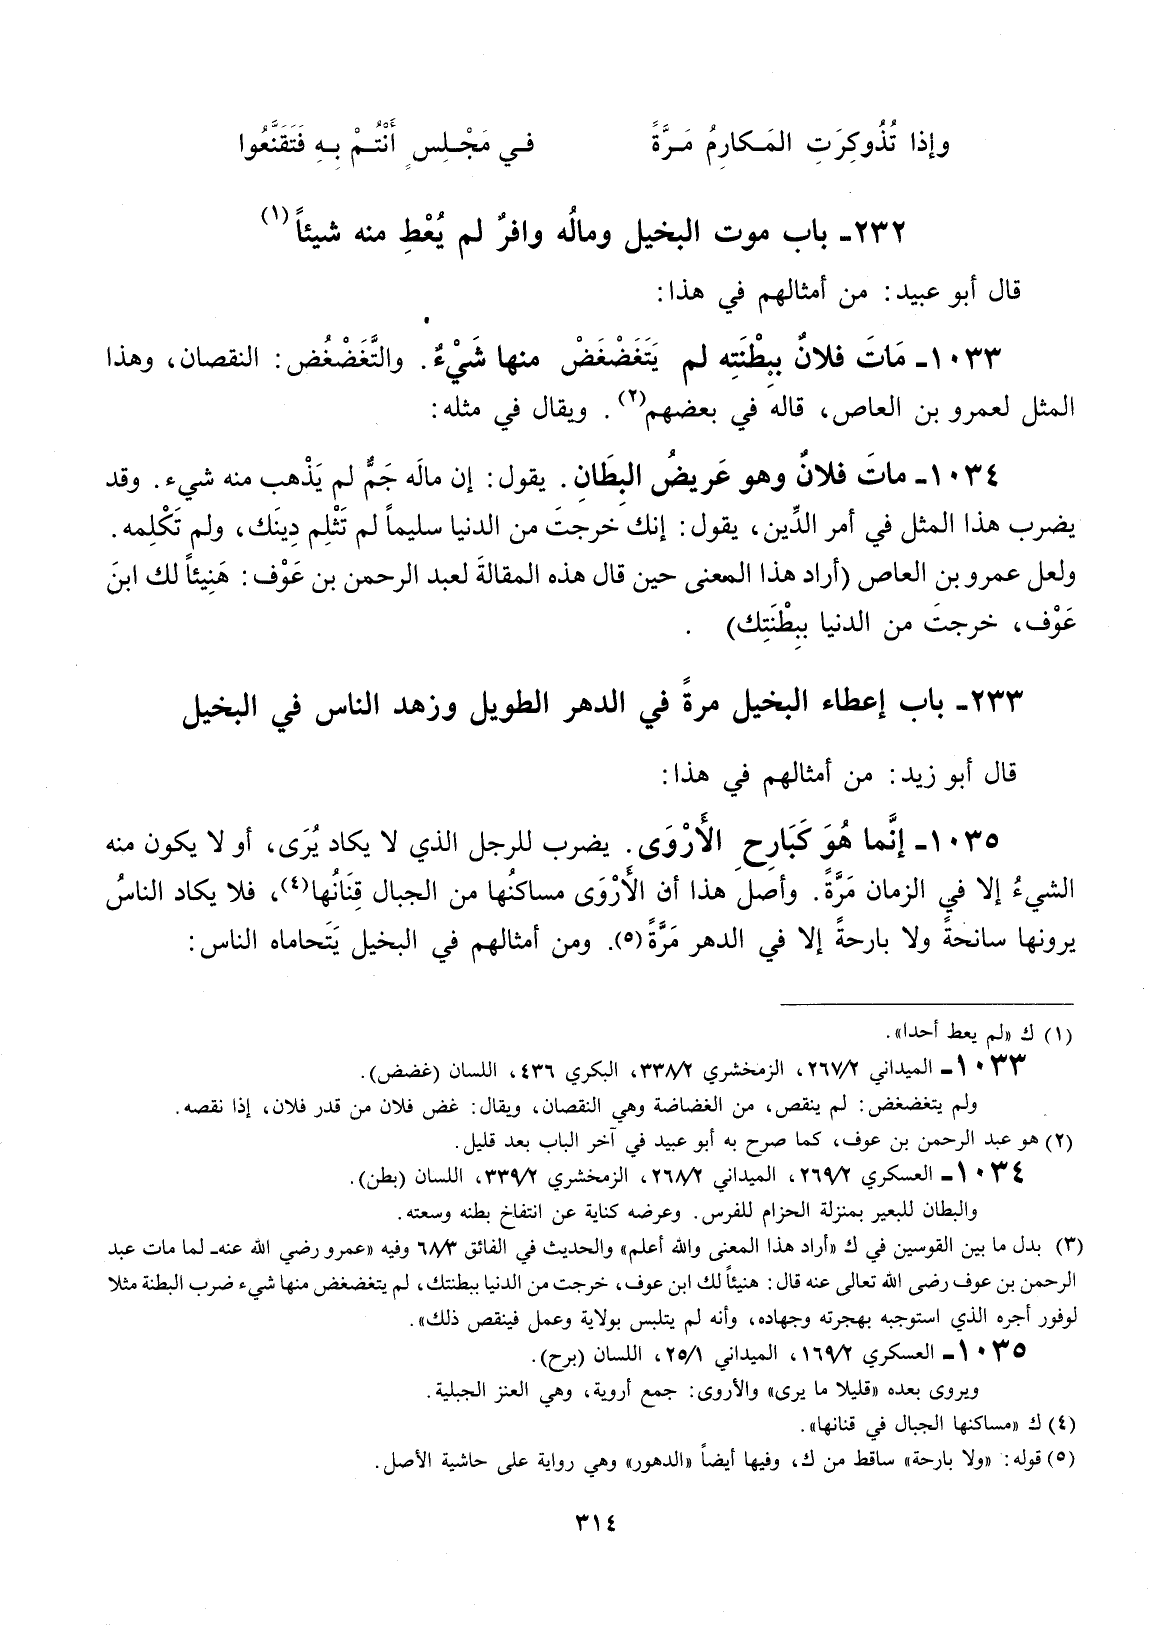 وإذا تُذُوكِرَتِ المَكارِمُ مَرَّةً في مَجْلِسٍ أَنْتُمْ بِهِ فَتَقَنَّعُوا
٢٣٢- باب موت البخيل ومالُه وافرٌ لم يُعْطِ منه شيئاً(١)
قال أبو عبيد: من أمثالهم في هذا:
١٠٣٣- مَاتَ فلانٌ بِبِطْنَتِه لم يَتَغَضْغَضْ منها شَيْءٌ. والتَّغَضْغُض: النقصان، وهذا
المثل لعمرو بن العاص، قاله في بعضهم(٢). ويقال في مثله:
١٠٣٤- ماتَ فلانٌ وهو عَريضُ البِطَانِ. يقول: إن مالَه جَمٌّ لم يَذْهب منه شيء. وقد
يضرب هذا المثل في أمر الدِّين، يقول: إنك خرجتَ من الدنيا سليماً لم تَثْلِم دِينَك، ولم تَكْلِمه.
ولعل عمرو بن العاص (أراد هذا المعنى حين قال هذه المقالةَ لعبد الرحمن بن عَوْف: هَنِيئاً لك ابنَ
عَوْف، خرجتَ من الدنيا بِبِطْنَتِك) .
٢٣٣- باب إعطاء البخيل مرةً في الدهر الطويل وزهد الناس في البخيل
قال أبو زيد: من أمثالهم في هذا:
١٠٣٥- إنَّما هُوَ كَبَارِحِ الأَرْوَى. يضرب للرجل الذي لا يكاد يُرَى، أو لا يكون منه
الشيءُ إلا في الزمان مَرَّةً. وأصل هذا أن الأَرْوَى مساكنُها من الجبال قِنَانُها(٤)، فلا يكاد الناسُ
يرونها سانحةً ولا بارحةً إلا في الدهر مَرَّةً(٥). ومن أمثالهم في البخيل يَتَحاماه الناس:
(١) ك «لم يعط أحدا».
١٠٣٣- الميداني ٢٦٧/٢، الزمخشري ٣٣٨/٢، البكري ٤٣٦، اللسان (غضض).
ولم يتغضغض: لم ينقص، من الغضاضة وهي النقصان، ويقال: غض فلان من قدر فلان، إذا نقصه.
(٢) هو عبد الرحمن بن عوف، كما صرح به أبو عبيد في آخر الباب بعد قليل.
١٠٣٤- العسكري ٢٦٩/٢، الميداني ٢٦٨/٢، الزمخشري ٣٣٩/٢، اللسان (بطن).
والبطان للبعير بمنزلة الحزام للفرس. وعرضه كناية عن انتفاخ بطنه وسعته.
(٣) بدل ما بين القوسين في ك «أراد هذا المعنى والله أعلم» والحديث في الفائق ٦٨/٣ وفيه «عمرو رضي الله عنه- لما مات عبد
الرحمن بن عوف رضى الله تعالى عنه قال: هنيئاً لك ابن عوف، خرجت من الدنيا ببطنتك، لم يتغضغض منها شيء ضرب البطنة مثلا
لوفور أجره الذي استوجبه بهجرته وجهاده، وأنه لم يتلبس بولاية وعمل فينقص ذلك».
١٠٣٥- العسكري ١٦٩/٢، الميداني ٢٥/١، اللسان (برح).
ويروى بعده «قليلا ما يرى» والأروى: جمع أروية، وهي العنز الجبلية.
(٤) ك «مساكنها الجبال في قنانها».
(٥) قوله: «ولا بارحة» ساقط من ك، وفيها أيضاً «الدهور» وهي رواية على حاشية الأصل.
٣١٤